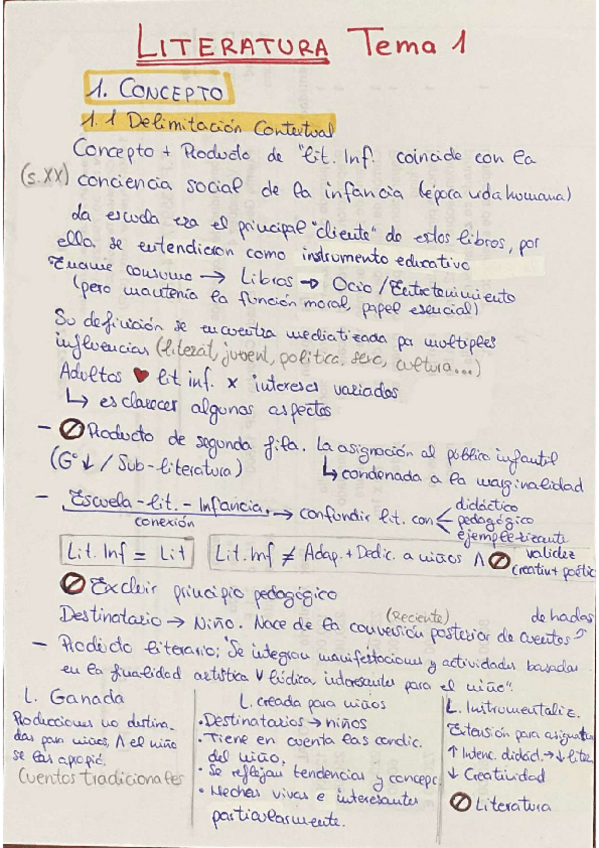 LITERATURA Tema 1
1. CONCEPTO
1.1 Delimitación Contextual
Concepto + Producto de "Lit. Inf. coincide con la
(s.XX) conciencia social de la infancia (época vida humana)
La escuela era el principal "cliente" de estos libros, por
ella se entendieron como instrumento educativo
consumo → Libros → Ocio / Entretenimiento
(pero mantenía la función moral, papel esencial)
Su definición se encuentra mediatizada por multiples
influencias (literat, juvent, politica, cultura...)
Adultos ♥ lit inf. x intereses variados
↳ esclarecer algunos aspectos
- Producto de segunda fila. La asignación al público infantil
(Gº ↓ / Sub-literatura) ↳ condenada a la marginalidad
- Escuela - lit. - Infancia. → confundir lit. con didáctico
conexión pedagógico
ejemplerizante
Lit. Inf = Lit Lit. Inf ≠ Adap. + Dedic. a niños Λ validez
creativ + poétic
Excluir principio pedagógico
(Reciente) de hadas
Destinatario → Niño. Nace de la conversión posterior de cuentos
- Producto literario: "Se integran manifestaciones y actividades basadas
en la finalidad artística V lúdica interesantes para el niño".
L. Ganada
Producciones no destina-
das para niños, Λ el niño
se las apropió.
Cuentos tradicionales
L. creada para niños
• Destinatarios → niños
• Tiene en cuenta las condic.
del niño.
• Se reflejan tendencias y concepc
• Hechas vivas e interesantes
particularmente.
L. Instrumentaliz.
Extensión para asignatu
↑ Intenc. didáct. → ↓ liter
↓ Creatividad
Literatura